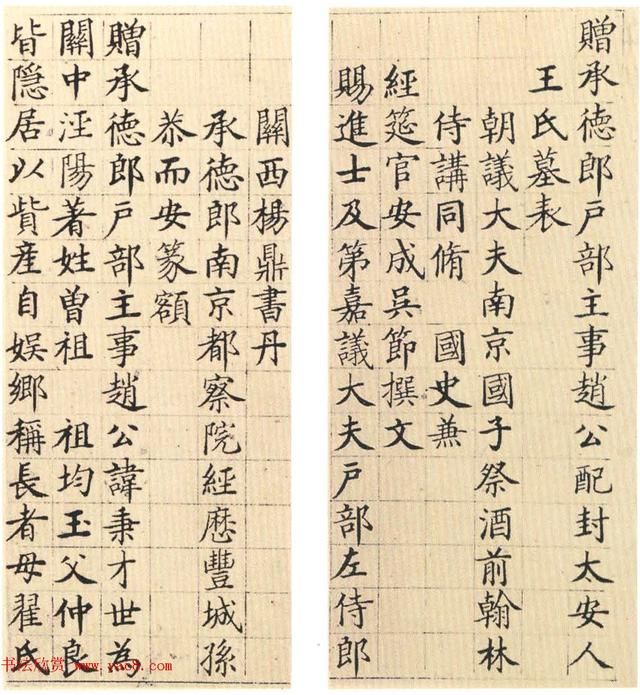 贈承德郎戶部主事趙公配封太安人
王氏墓表
朝議大夫南京國子祭酒前翰林
侍講同脩　國史兼
經筵官安成吳節撰文
賜進士及第嘉議大夫戶部左侍郎
關西楊鼎書丹
承德郎南京都察院經歷豐城孫
恭而安篆額
贈承德郎戶部主事趙公諱秉才世為
關中涇陽著姓曾祖　祖均玉父仲良
皆隱居以貲產自娛鄉稱長者母翟氏
书法欣赏 www.yac8.com